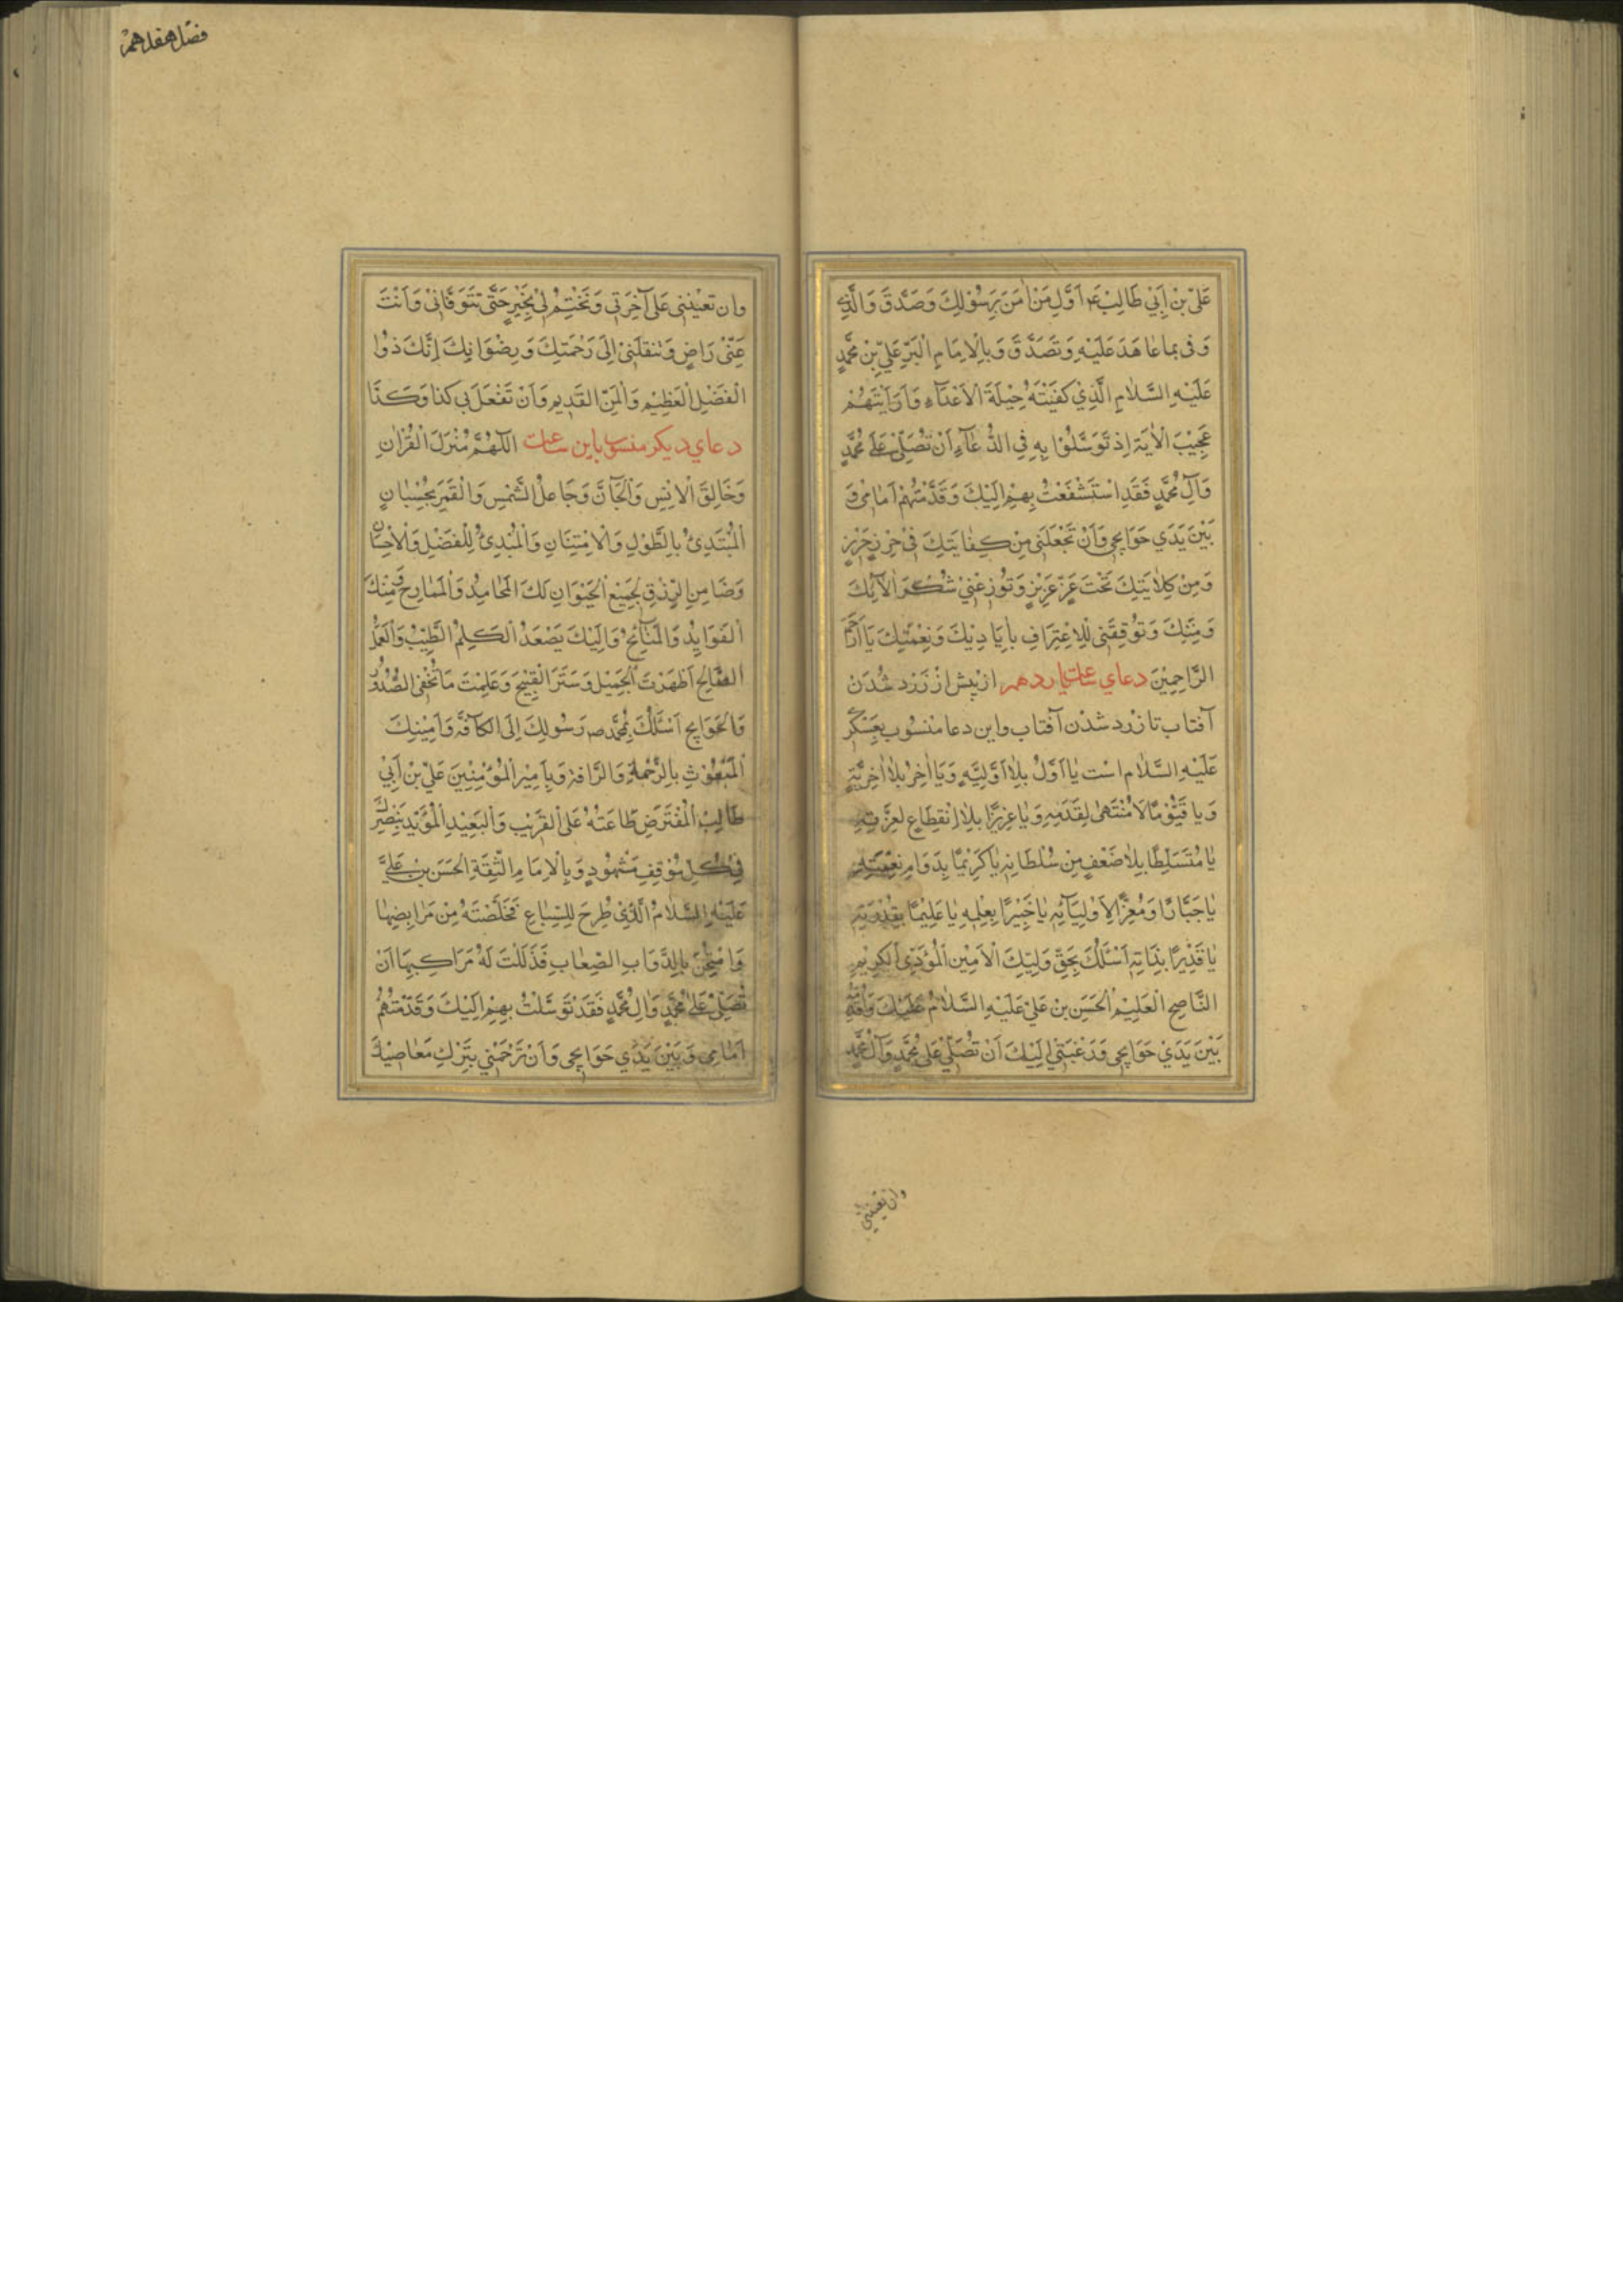 عَلِيّ بْنِ اَبِي طَالِبْ ع اَوَّلِ مَنْ اٰمَنَ بِرَسُوْلِكَ وَصَدَّقَ وَالَّذِي
وَفٰى بِمَا عَاهَدَ عَلَيْهِ وَتَصَدَّقَ وَبِالْاِمَامِ الْبَرِّ عَلِيِّ بْنِ مُحَمَّدٍ
عَلَيْهِ السَّلَامِ الَّذِيْ كَفَيْتَهُ حِيْلَةَ الْاَعْدَآءِ وَاَرَيْتَهُمْ
عَجِيْبَ الْاٰيَةِ اِذْ تَوَسَّلُوْا بِهِ فِي الدُّعَآءِ اَنْ تُصَلِّيَ عَلٰى مُحَمَّدٍ
وَآلِ مُحَمَّدٍ فَقَدِ اسْتَشْفَعْتُ بِهِمْ اِلَيْكَ وَقَدَّمْتُهُمْ اَمَامِيْ وَ
بَيْنَ يَدَيْ حَوَايِجِي وَاَنْ تَجْعَلَنِي مِنْ كِفَايَتِكَ فِيْ حِرْزٍ حَرِيْزٍ
وَمِنْ كِلَايَتِكَ تَحْتَ عِزٍّ عَزِيْزٍ وَتُوْزِعْنِيْ شُكْرَ اٰلَآئِكَ
وَمِنَنِكَ وَتُوَفِّقَنِي لِلْاِعْتِرَافِ بِاَيَادِيْكَ وَنِعْمَتِكَ يَا اَرْحَمَ
الرَّاحِمِيْنَ دعاي ساعت يازدهم از پيش از زرد شدن
آفتاب تا زرد شدن آفتاب واين دعا منسوب بعسكري
عَلَيْهِ السَّلَام است يَا اَوَّلُ بِلَا اَوَّلِيَّةٍ وَيَا اٰخِرُ بِلَا اٰخِرِيَّةٍ
وَيَا قَيُّوْمًا لَا مُنْتَهٰى لِقِدَمِهِ وَيَا عَزِيْزًا بِلَا اِنْقِطَاعٍ لِعِزَّتِهِ
يَا مُتَسَلِّطًا بِلَا ضَعْفٍ مِنْ سُلْطَانِهِ يَا كَرِيْمًا بِدَوَامِ نِعْمَتِهِ
يَا جَبَّارًا وَمُعِزًّا لِاَوْلِيَآئِهِ يَا خَبِيْرًا بِعِلْمِهِ يَا عَلِيْمًا بِقُدْرَتِهِ
يَا قَدِيْرًا بِذَاتِهِ اَسْئَلُكَ بِحَقِّ وَلِيِّكَ الْاَمِيْنِ الْمُؤَدِّي الْكَرِيْمِ
النَّاصِحِ الْعَلِيْمِ الْحَسَنِ بْنِ عَلِيّ عَلَيْهِ السَّلَامُ عَلَيْكَ وَاُقَدِّمُهُ
بَيْنَ يَدَيْ حَوَايِجِي وَرَغْبَتِي اِلَيْكَ اَنْ تُصَلِّيَ عَلٰى مُحَمَّدٍ وَآلِ مُحَمَّدٍ
وان تعينني
فصل هفدهم
وان تعْيننِي عَلٰى آخِرَتِي وَتَخْتِمَ لِيْ بِخَيْرٍ حَتّٰى تَتَوَفَّانِيْ وَاَنْتَ
عَنِّيْ رَاضٍ وَتَنْقُلَنِيْ اِلٰى رَحْمَتِكَ وَرِضْوَانِكَ اِنَّكَ ذُوا
الْفَضْلِ الْعَظِيْمِ وَالْمَنِّ الْقَدِيمِ وَاَنْ تَفْعَلَ بِي كَذَا وَكَذَا
دعاي ديكر منسوب باين ساعت اَللّٰهُمَّ مُنْزِلَ الْقُرْاٰنِ
وَخَالِقَ الْاِنْسِ وَالْجَآنِّ وَجَاعِلَ الشَّمْسِ وَالْقَمَرِ بِحُسْبَانٍ
اَلْمُبْتَدِئُ بِالطَّوْلِ وَالْاِمْتِنَانِ وَالْمُبْدِئُ لِلْفَضْلِ وَالْاِحْسَانِ
وَضَامِنَ الرِّزْقِ لِجَمِيْعِ الْحَيَوَانِ لَكَ الْمَحَامِدُ وَالْمَمَادِحُ وَمِنْكَ
الْفَوَايِدُ وَالْمَنَائِحُ وَاِلَيْكَ يَصْعَدُ الْكَلِمُ الطَّيِّبُ وَالْعَمَلُ
الصَّالِحُ اَظْهَرْتَ الْجَمِيْلَ وَسَتَرْتَ الْقَبِيْحَ وَعَلِمْتَ مَا تُخْفِي الصُّدُوْرُ
وَالْحَوَايِجِ اَسْئَلُكَ بِمُحَمَّدٍ ص رَسُولِكَ اِلَى الْكَآفَّةِ وَاَمِيْنِكَ
الْمَبْعُوْثِ بِالرَّحْمَةِ وَالرَّافَةِ وَبِاَمِيْرِ الْمُؤْمِنِيْنَ عَلِيِّ بْنِ اَبِيْ
طَالِبٍ الْمُفْتَرَضِ طَاعَتُهُ عَلَى الْقَرِيْبِ وَالْبَعِيْدِ الْمُؤَيَّدِ بِنَصْرِكَ
فِيْ كُلِّ مَوْقِفٍ مَشْهُوْدٍ وَبِالْاِمَامِ الثِّقَةِ الْحَسَنِ بْنِ عَلِيٍّ
عَلَيْهِ السَّلَامُ الَّذِيْ طُرِحَ لِلسِّبَاعِ فَخَلَّصْتَهُ مِنْ مَرَابِضِهَا
وَامْتُحِنَ بِالدَّوَابِ الصِّعَابِ فَذَلَّلْتَ لَهُ مَرَاكِبَهَا اَنْ
تُصَلِّيَ عَلٰى مُحَمَّدٍ وَاٰلِ مُحَمَّدٍ فَقَدْ تَوَسَّلْتُ بِهِمْ اِلَيْكَ وَقَدَّمْتُهُمْ
اَمَامِي وَبَيْنَ يَدَيْ حَوَايِجِي وَاَنْ تَرْحَمَنِي بِتَرْكِ مَعَاصِيْكَ